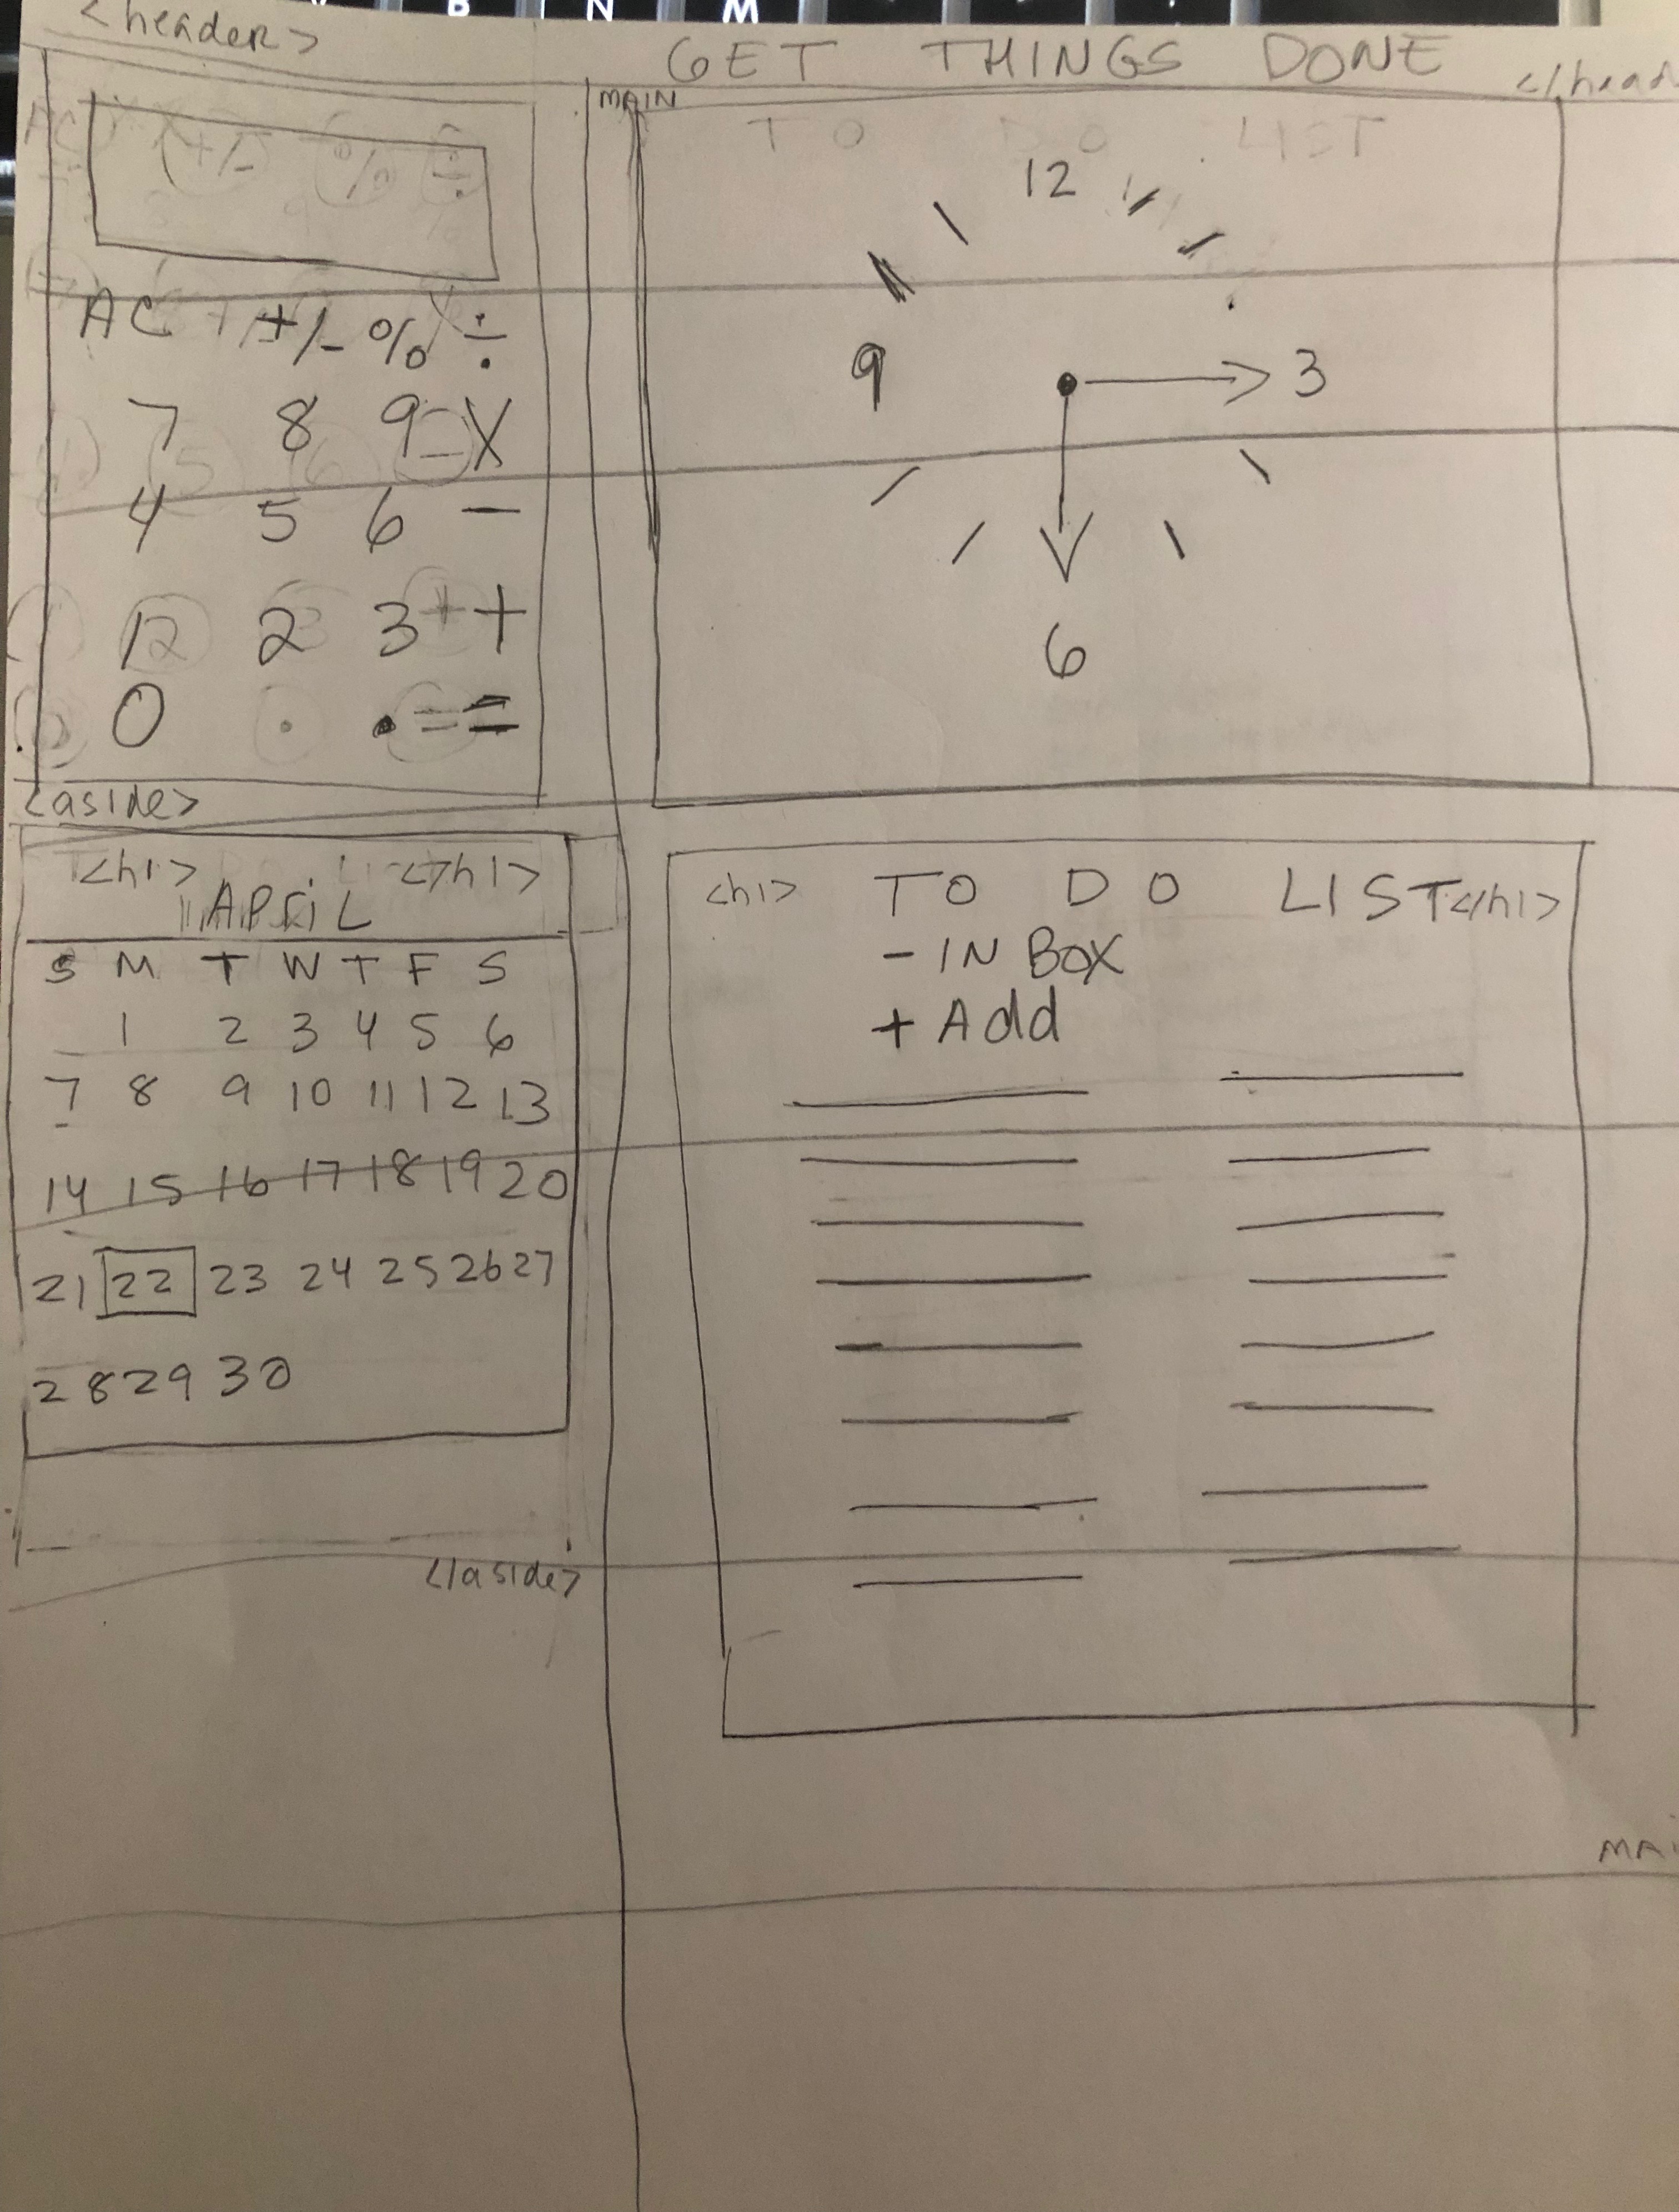 <header>
GET THINGS DONE
MAIN
TO DO LIST
+/- % ÷
AC +/- % ÷
7 8 9 X
4 5 6 -
1 2 3 + +
0 . . = =
12
9
3
6
<aside>
<h1> </h1>
APRIL
S M T W T F S
1 2 3 4 5 6
7 8 9 10 11 12 13
14 15 16 17 18 19 20
21 22 23 24 25 26 27
28 29 30
</aside>
<h1> TO DO LIST </h1>
- IN BOX
+ Add